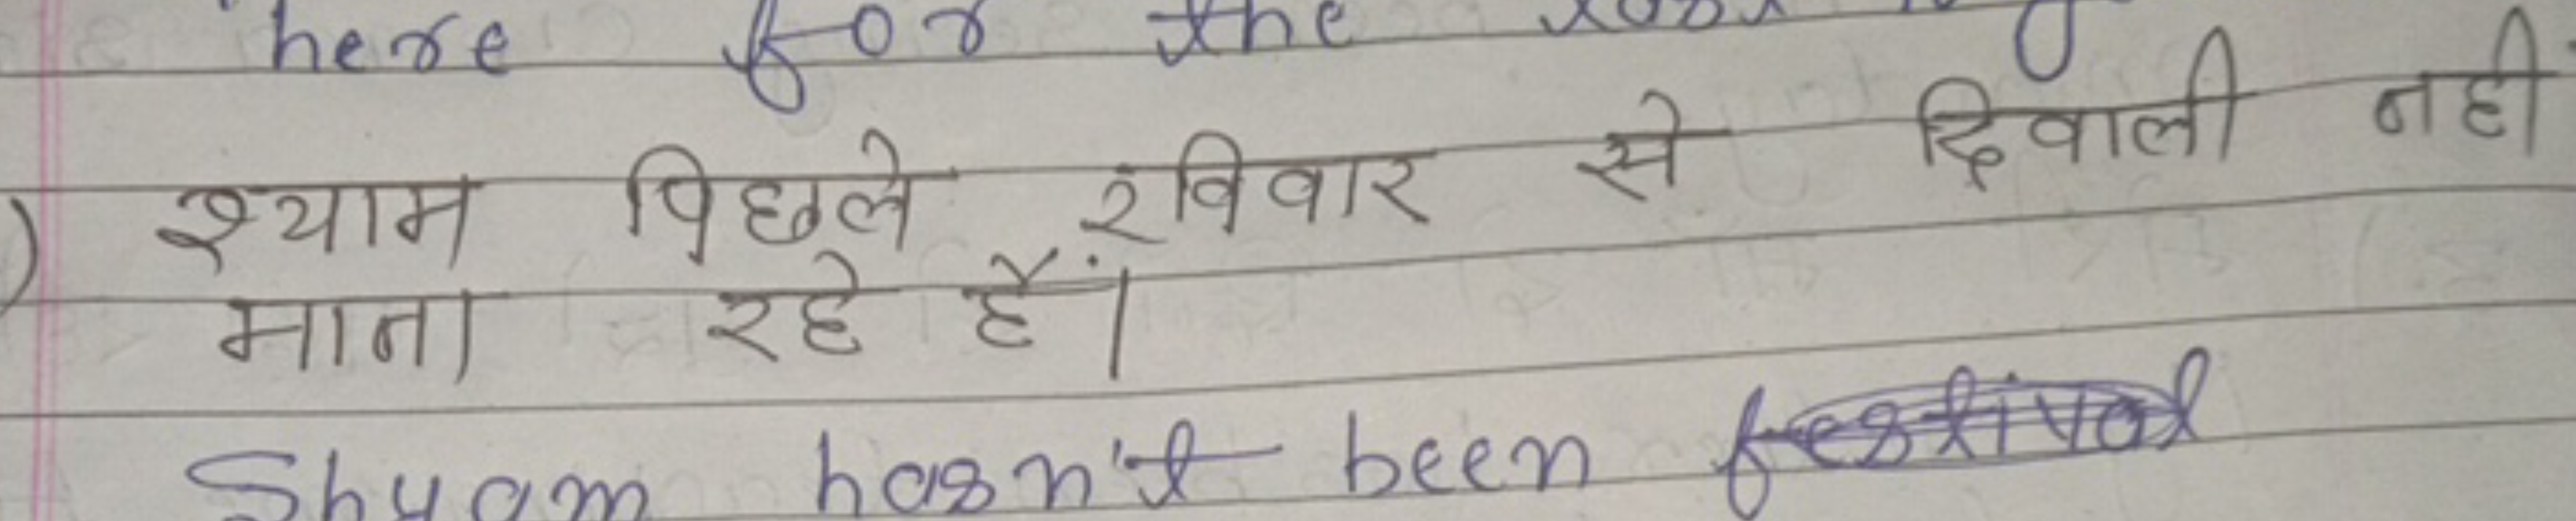 here for the
) श्याम पिछले रविवार से दिवाली नही
माना रहे हैं।
Shyam hasn't been